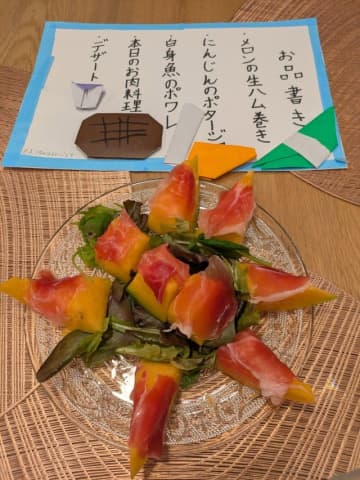 お品書き
・メロンの生ハム巻き
・にんじんのポタージュ
・白身魚のポワレ
・本日のお肉料理
・デザート